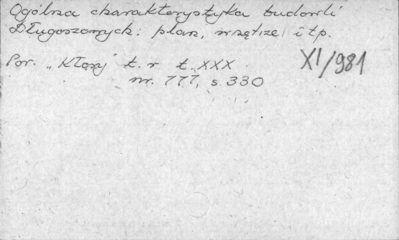 Ogólna charakterystyka budowli
Długoszowych: plan, wnętrze itp.
XI/981
Por. "Kłosy" t. r. t. XXX
nr. 777, s. 330